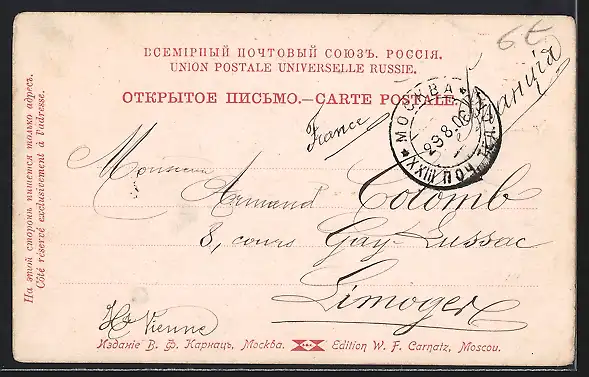 6€
ВСЕМІРНЫЙ ПОЧТОВЫЙ СОЮЗЪ. РОССІЯ.
UNION POSTALE UNIVERSELLE RUSSIE.
ОТКРЫТОЕ ПИСЬМО.—CARTE POSTALE.
Франція
France
МОСКВА
23.8.06
XXIII ПОЧ.
Monsieur
Armand Colomb
8, cours Gay-Lussac
Limoges
Hte Vienne
Изданіе В. Ф. Карнацъ, Москва. Edition W. F. Carnatz, Moscou.
На этой сторонѣ пишется только адресъ.
Côté réservé exclusivement à l'adresse.